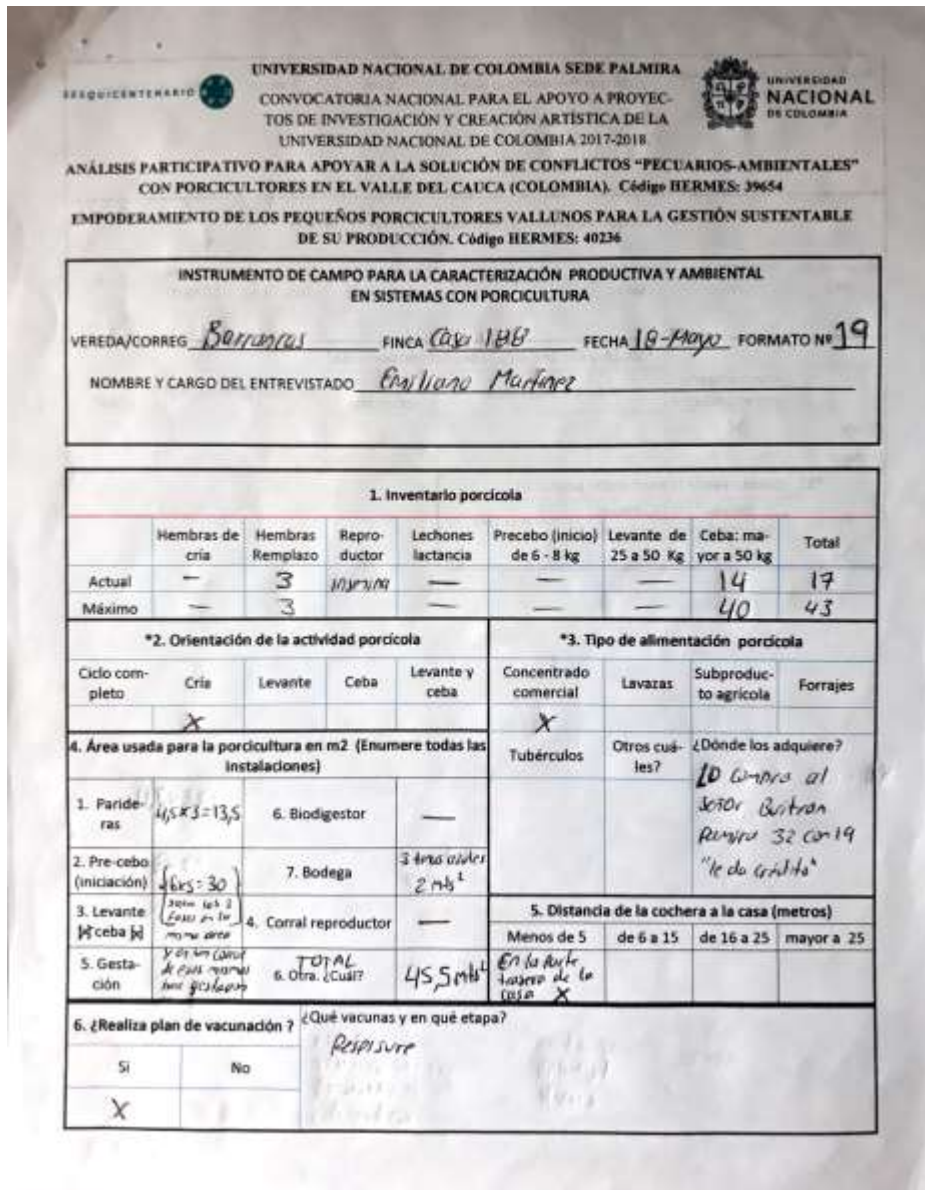 SESQUICENTENARIO
UNIVERSIDAD NACIONAL DE COLOMBIA SEDE PALMIRA
CONVOCATORIA NACIONAL PARA EL APOYO A PROYEC-
TOS DE INVESTIGACIÓN Y CREACIÓN ARTÍSTICA DE LA
UNIVERSIDAD NACIONAL DE COLOMBIA 2017-2018
UNIVERSIDAD
NACIONAL
DE COLOMBIA
ANÁLISIS PARTICIPATIVO PARA APOYAR A LA SOLUCIÓN DE CONFLICTOS “PECUARIOS-AMBIENTALES”
CON PORCICULTORES EN EL VALLE DEL CAUCA (COLOMBIA). Código HERMES: 39654
EMPODERAMIENTO DE LOS PEQUEÑOS PORCICULTORES VALLUNOS PARA LA GESTIÓN SUSTENTABLE
DE SU PRODUCCIÓN. Código HERMES: 40236
INSTRUMENTO DE CAMPO PARA LA CARACTERIZACIÓN PRODUCTIVA Y AMBIENTAL
EN SISTEMAS CON PORCICULTURA
VEREDA/CORREG Barrancas FINCA Casa 188 FECHA 18-Mayo FORMATO Nº 19
NOMBRE Y CARGO DEL ENTREVISTADO Emiliano Martinez
1. Inventario porcícola
Hembras de cría Hembras Remplazo Repro-ductor Lechones lactancia Precebo (inicio) de 6 - 8 kg Levante de 25 a 50 Kg Ceba: ma-yor a 50 kg Total
Actual — 3 insemina — — — 14 17
Máximo — 3 — — — 40 43
*2. Orientación de la actividad porcícola
Ciclo com-pleto Cría Levante Ceba Levante y ceba
X
*3. Tipo de alimentación porcícola
Concentrado comercial Lavazas Subproduc-to agrícola Forrajes
X
Tubérculos Otros cuá-les? ¿Dónde los adquiere?
Lo compra al
señor Buitron
32 con 19
"le da crédito"
4. Área usada para la porcicultura en m2 (Enumere todas las
instalaciones)
1. Paride-ras 4,5x3=13,5 6. Biodigestor —
2. Pre-cebo (iniciación) 6x5=30 7. Bodega 2 mts²
3. Levante y ceba 4. Corral reproductor —
5. Gesta-ción TOTAL 6. Otra. ¿Cuál? 45,5 mts²
5. Distancia de la cochera a la casa (metros)
Menos de 5 de 6 a 15 de 16 a 25 mayor a 25
En la parte
trasera de la
casa X
6. ¿Realiza plan de vacunación ? ¿Qué vacunas y en qué etapa?
Respisure
Si No
X